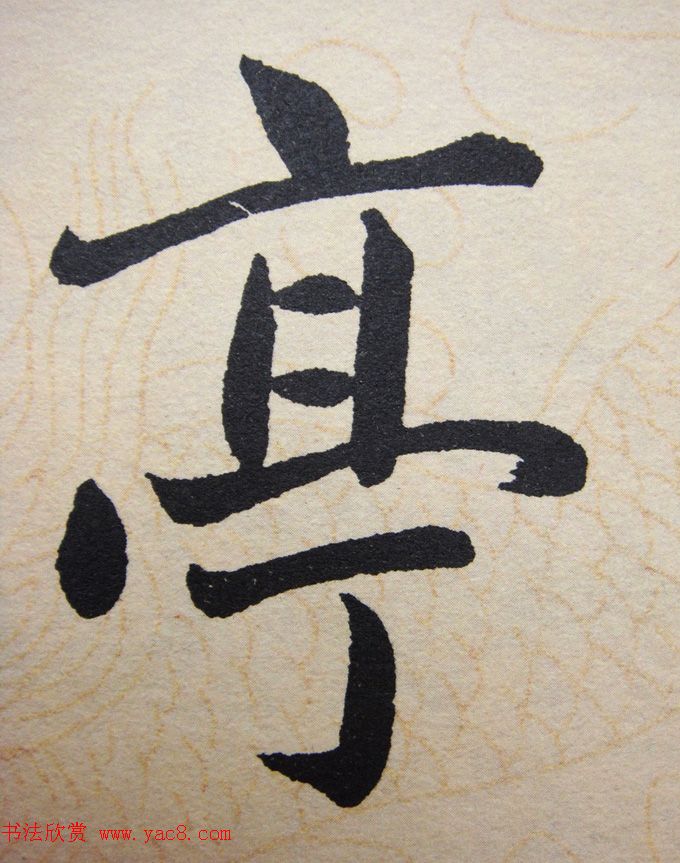 亭
书法欣赏 www.yac8.com